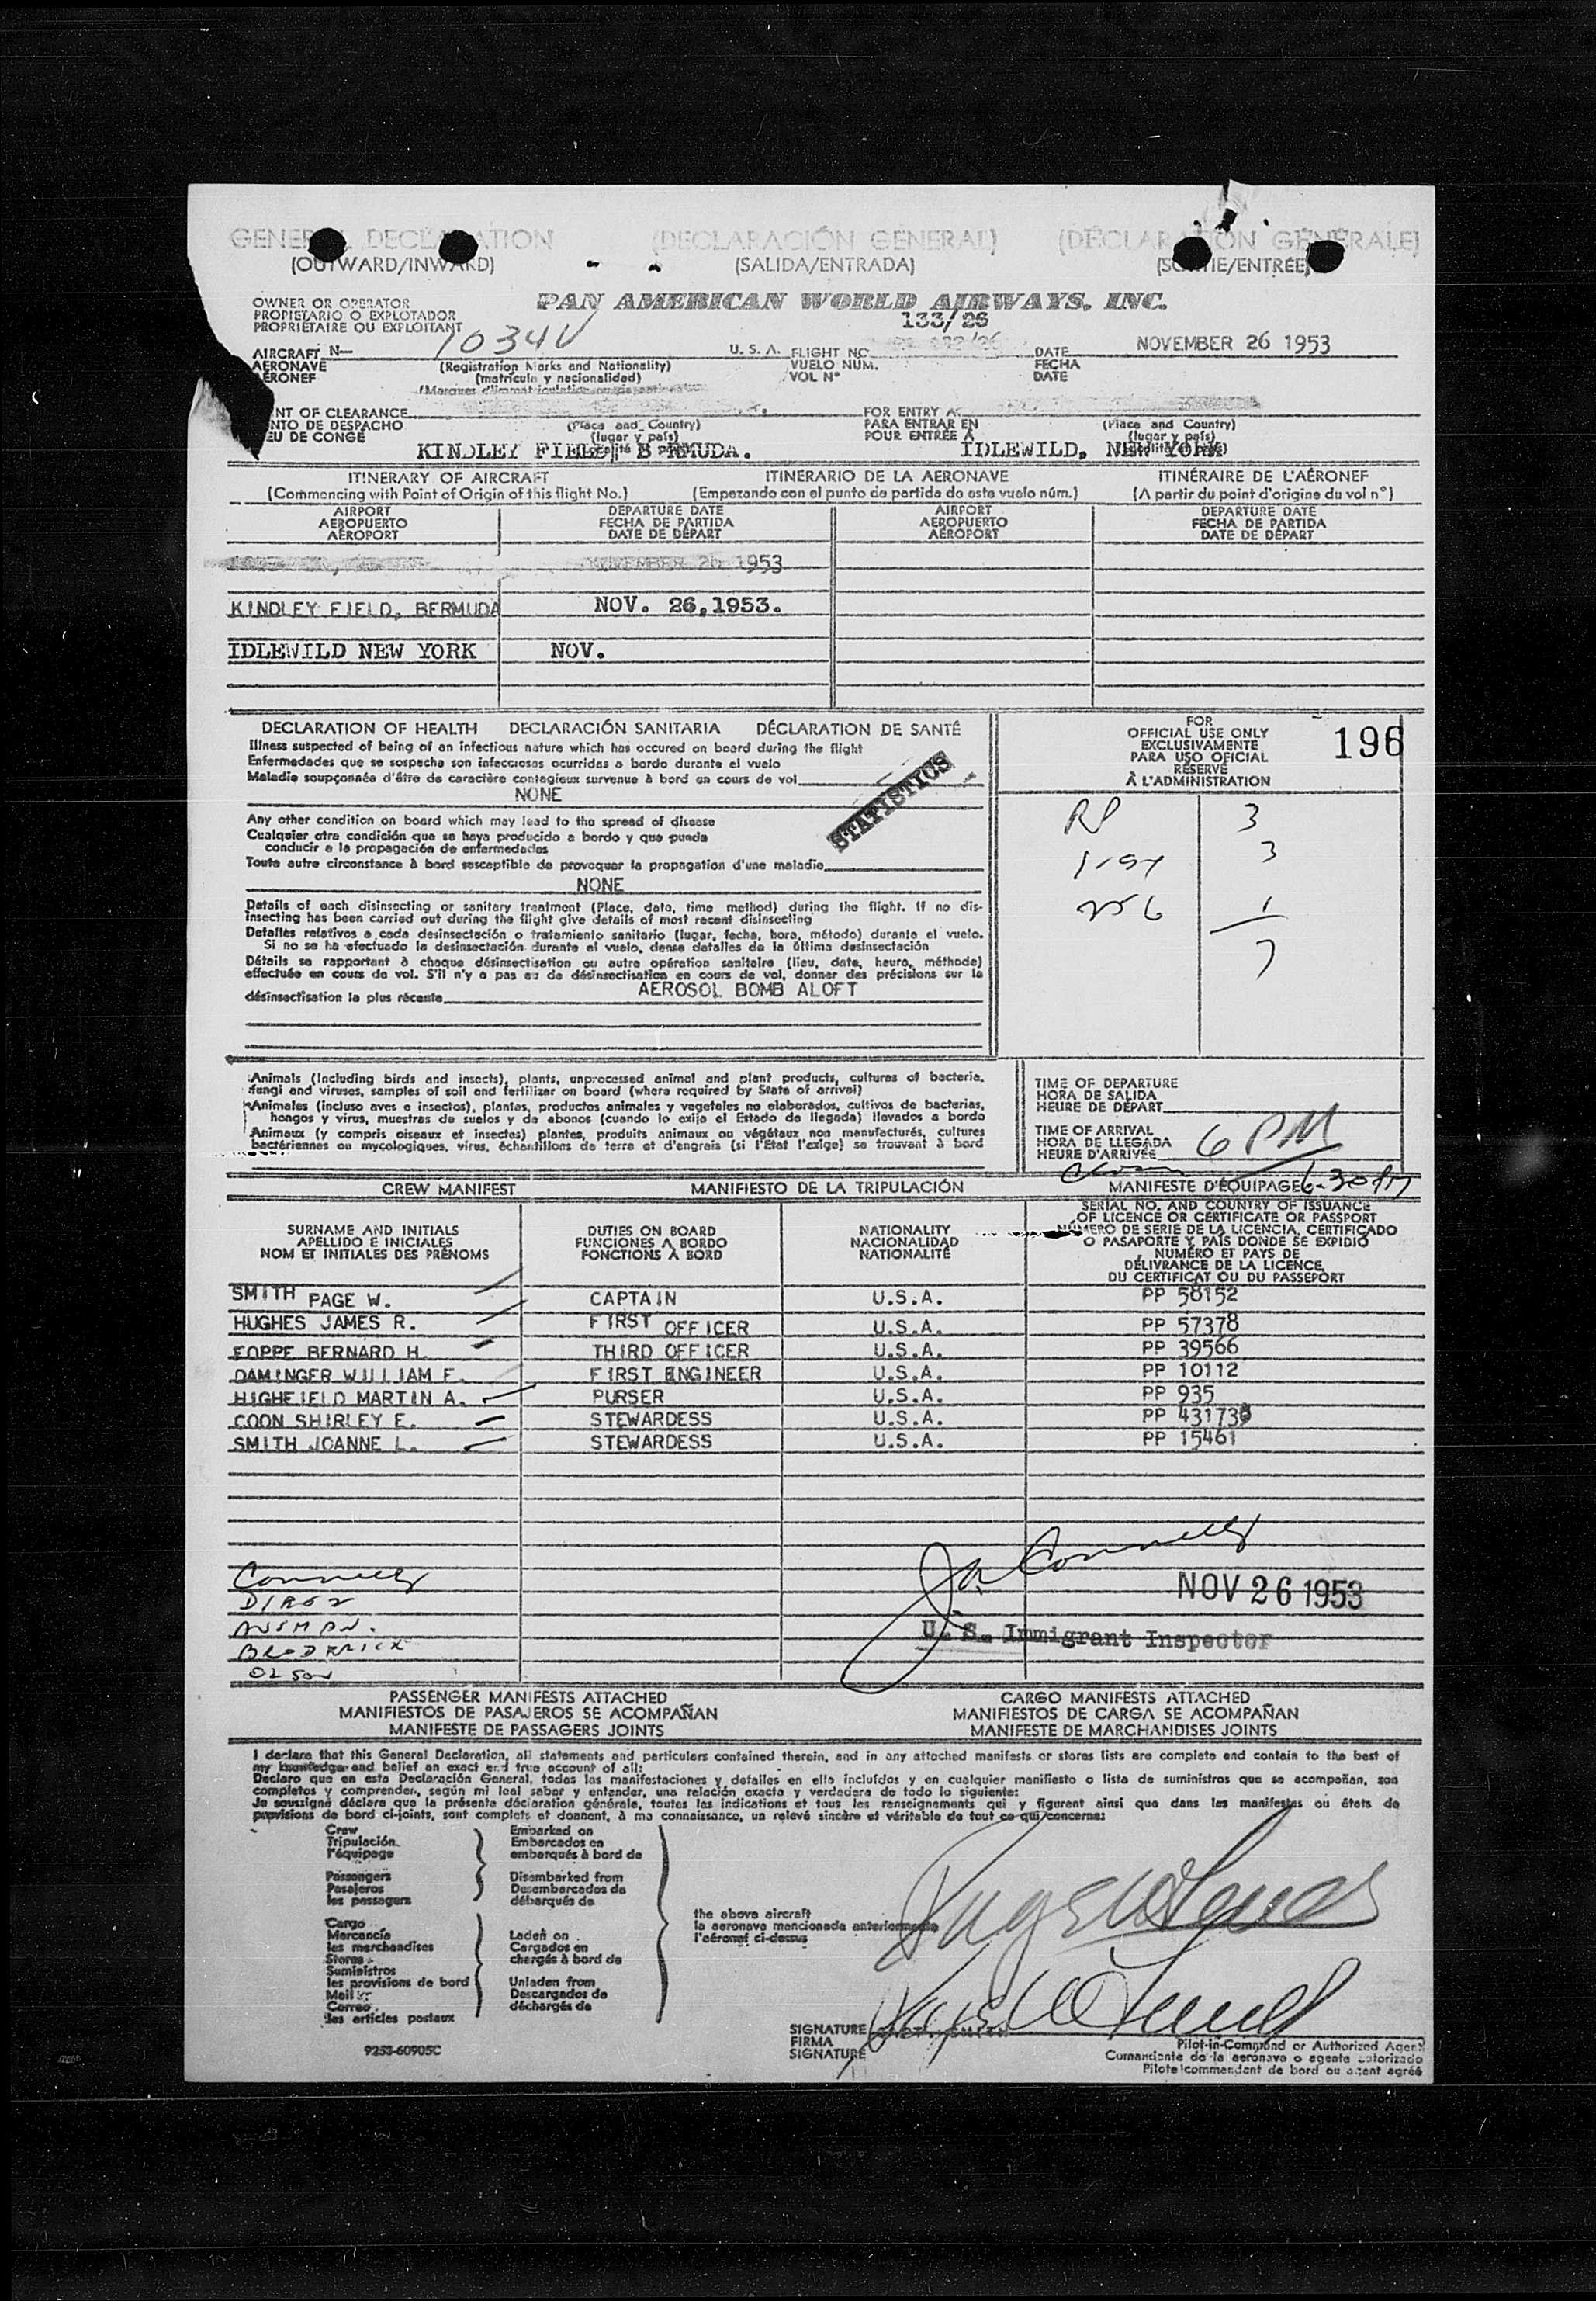 GENERAL DECLARATION (DECLARACIÓN GENERAL) (DÉCLARATION GÉNÉRALE)
(OUTWARD/INWARD) (SALIDA/ENTRADA) (SORTIE/ENTRÉE)
OWNER OR OPERATOR
PROPIETARIO O EXPLOTADOR
PROPRIÉTAIRE OU EXPLOITANT
PAN AMERICAN WORLD AIRWAYS, INC.
133/26
AIRCRAFT N— 1034V U.S.A. FLIGHT NO DATE NOVEMBER 26 1953
AERONAVE (Registration Marks and Nationality) VUELO NÚM. FECHA
AÉRONEF (matrícula y nacionalidad) VOL N° DATE
NT OF CLEARANCE FOR ENTRY A
NTO DE DESPACHO (Place and Country) PARA ENTRAR EN (Place and Country)
EU DE CONGÉ (lugar y país) POUR ENTRÉE À (lugar y país)
KINDLEY FIELD, B RMUDA. IDLEWILD, NEW YORK
ITINERARY OF AIRCRAFT ITINERARIO DE LA AERONAVE ITINÉRAIRE DE L'AÉRONEF
(Commencing with Point of Origin of this flight No.) (Empezando con el punto de partida de este vuelo núm.) (A partir du point d'origine du vol n°)
AIRPORT DEPARTURE DATE AIRPORT DEPARTURE DATE
AEROPUERTO FECHA DE PARTIDA AEROPUERTO FECHA DE PARTIDA
AÉROPORT DATE DE DÉPART AÉROPORT DATE DE DÉPART
NOVEMBER 26 1953
KINDLEY FIELD, BERMUDA NOV. 26,1953.
IDLEWILD NEW YORK NOV.
DECLARATION OF HEALTH DECLARACIÓN SANITARIA DÉCLARATION DE SANTÉ
Illness suspected of being of an infectious nature which has occured on board during the flight
Enfermedades que se sospecha son infecciosas ocurridas a bordo durante el vuelo
Maladie soupçonnée d'être de caractère contagieux survenue à bord en cours de vol
NONE
STATISTICS
Any other condition on board which may lead to the spread of disease
Cualquier otra condición que se haya producido a bordo y que pueda
conducir a la propagación de enfermedades
Toute autre circonstance à bord susceptible de provoquer la propagation d'une maladie
NONE
Details of each disinsecting or sanitary treatment (Place, date, time method) during the flight. If no dis-
insecting has been carried out during the flight give details of most recent disinsecting
Detalles relativos a cada desinsectación o tratamiento sanitario (lugar, fecha, hora, método) durante el vuelo.
Si no se ha efectuado la desinsectación durante el vuelo, dense detalles de la última desinsectación
Détails se rapportant à chaque désinsectisation ou autre opération sanitaire (lieu, date, heure, méthode)
effectuée en cours de vol. S'il n'y a pas eu de désinsectisation en cours de vol, donner des précisions sur la
désinsectisation la plus récente AEROSOL BOMB ALOFT
FOR
OFFICIAL USE ONLY
EXCLUSIVAMENTE
PARA USO OFICIAL
RÉSERVÉ
À L'ADMINISTRATION
196
3
3
256 1
7
Animals (Including birds and insects), plants, unprocessed animal and plant products, cultures of bacteria,
fungi and viruses, samples of soil and fertilizer on board (where required by State of arrival)
Animales (incluso aves e insectos), plantas, productos animales y vegetales no elaborados, cultivos de bacterias,
hongos y virus, muestras de suelos y de abonos (cuando lo exija el Estado de llegada) llevados a bordo
Animaux (y compris oiseaux et insectes) plantes, produits animaux ou végétaux non manufacturés, cultures
bactériennes ou mycologiques, virus, échantillons de terre et d'engrais (si l'Etat l'exige) se trouvant à bord
TIME OF DEPARTURE
HORA DE SALIDA
HEURE DE DÉPART
TIME OF ARRIVAL
HORA DE LLEGADA
HEURE D'ARRIVÉE 6 PM
6-30 PM
CREW MANIFEST MANIFIESTO DE LA TRIPULACIÓN MANIFESTE D'ÉQUIPAGE
SURNAME AND INITIALS
APELLIDO E INICIALES
NOM ET INITIALES DES PRÉNOMS
DUTIES ON BOARD
FUNCIONES A BORDO
FONCTIONS À BORD
NATIONALITY
NACIONALIDAD
NATIONALITÉ
SERIAL NO. AND COUNTRY OF ISSUANCE
OF LICENCE OR CERTIFICATE OR PASSPORT
NÚMERO DE SERIE DE LA LICENCIA, CERTIFICADO
O PASAPORTE Y PAÍS DONDE SE EXPIDIÓ
NUMÉRO ET PAYS DE
DÉLIVRANCE DE LA LICENCE
DU CERTIFICAT OU DU PASSEPORT
SMITH PAGE W. CAPTAIN U.S.A. PP 58152
HUGHES JAMES R. FIRST OFFICER U.S.A. PP 57378
FOPPE BERNARD H. THIRD OFFICER U.S.A. PP 39566
DAMINGER WILLIAM F. FIRST ENGINEER U.S.A. PP 10112
HIGHFIELD MARTIN A. PURSER U.S.A. PP 935
COON SHIRLEY E. STEWARDESS U.S.A. PP 43173
SMITH JOANNE L. STEWARDESS U.S.A. PP 15461
Connelly
AUSMAN.
BRODERICK
OLSON
Connelly
NOV 26 1953
U. S. Immigrant Inspector
PASSENGER MANIFESTS ATTACHED CARGO MANIFESTS ATTACHED
MANIFIESTOS DE PASAJEROS SE ACOMPAÑAN MANIFIESTOS DE CARGA SE ACOMPAÑAN
MANIFESTE DE PASSAGERS JOINTS MANIFESTE DE MARCHANDISES JOINTS
I declare that this General Declaration, all statements and particulars contained therein, and in any attached manifests or stores lists are complete and contain to the best of
my knowledge and belief an exact and true account of all:
Declaro que en esta Declaración General, todas las manifestaciones y detalles en ella incluídos y en cualquier manifiesto o lista de suministros que se acompañan, son
completos y comprenden, según mi leal saber y entender, una relación exacta y verdadera de todo lo siguiente:
Je soussigné déclare que la présente déclaration générale, toutes les indications et tous les renseignements qui y figurent ainsi que dans les manifestes ou états de
provisions de bord ci-joints, sont complets et donnent, à ma connaissance, un relevé sincère et véritable de tout ce qui concerne:
Crew
Tripulación
l'équipage
Passengers
Pasajeros
les passagers
Cargo
Mercancía
les marchandises
Stores
Suministros
les provisions de bord
Mail
Correo
les articles postaux
Embarked on
Embarcados en
embarqués à bord de
Disembarked from
Desembarcados de
débarqués de
Laden on
Cargados en
chargés à bord de
Unladen from
Descargados de
déchargés de
the above aircraft
la aeronave mencionada anteriormente
l'aéronef ci-dessus
SIGNATURE CAPT. SMITH
FIRMA
SIGNATURE
Pilot-in-Command or Authorized Agent
Comandante de la aeronave o agente autorizado
Pilote commandant de bord ou agent agréé
9253-60905C